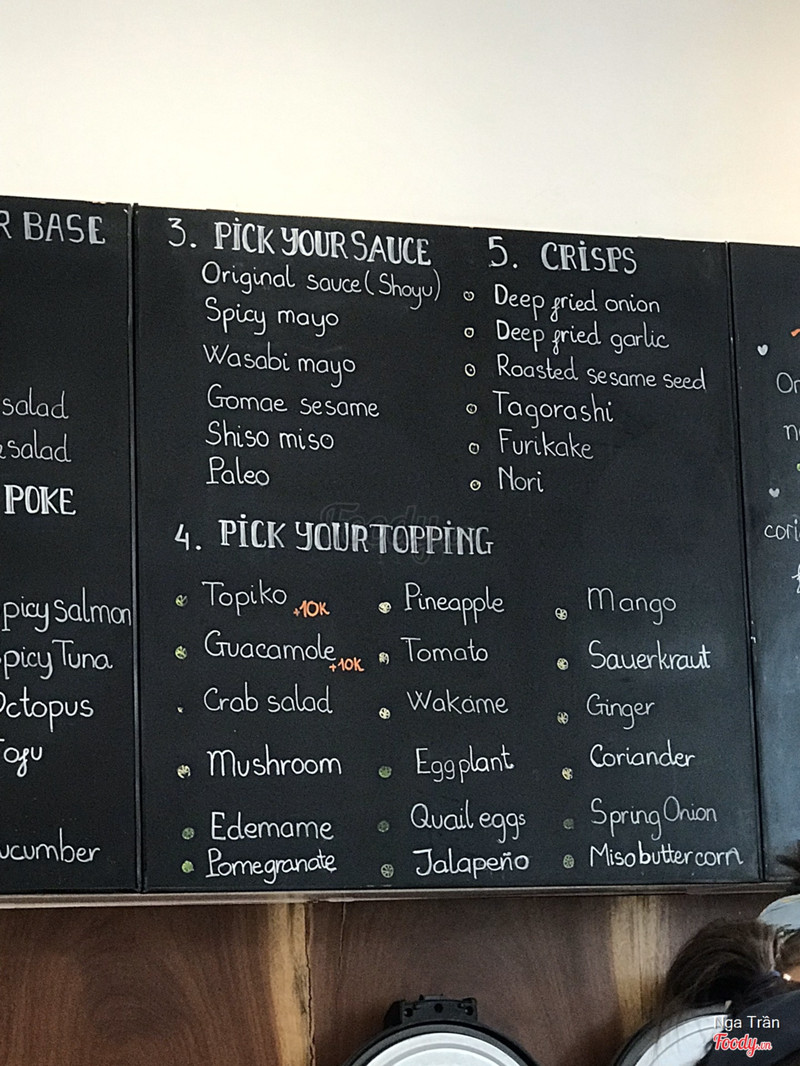 R BASE
salad
salad
POKE
picy salmon
picy Tuna
Octopus
Tofu
ucumber
3. PICK YOUR SAUCE
Original sauce (Shoyu)
Spicy mayo
Wasabi mayo
Gomae sesame
Shiso miso
Paleo
5. CRISPS
Deep fried onion
Deep fried garlic
Roasted sesame seed
Tagorashi
Furikake
Nori
4. PICK YOUR TOPPING
Topiko +10K
Guacamole +10K
Crab salad
Mushroom
Edemame
Pomegranate
Pineapple
Tomato
Wakame
Eggplant
Quail eggs
Jalapeño
Mango
Sauerkraut
Ginger
Coriander
Spring Onion
Miso butter corn
Or
n
cori
Foody
Nga Trần
Foody.vn